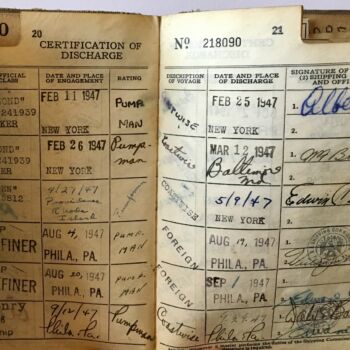 0
20
CERTIFICATION OF
DISCHARGE
OFFICIAL
CLASS
DATE AND PLACE
OF ENGAGEMENT
RATING
OND"
241939
KER
FEB 11 1947
NEW YORK
PUMP
MAN
OND"
241939
KER
FEB 26 1947
NEW YORK
Pump-
man
EN"
4/27/47
Providence
Rhode
Island
P
FINER
AUG 4, 1947
PHILA., PA.
PUMP-
MAN
P
FINER
AUG 20, 1947
PHILA., PA.
PUMP-
MAN
enry
9/12/47
Phila. Pa.
Pumpman
No 218090
21
DESCRIPTION
OF VOYAGE
DATE AND PLACE
OF DISCHARGE
SIGNATURE OF
(2) SHIPPING
AND OFFI
COASTWISE
FEB 25 1947
NEW YORK
1.
Albe
2.
Coastwise
MAR 12 1947
Baltimore
Md
1.
2.
COASTWISE
5/9/47
NEW YORK
1.
Edwin
2.
FOREIGN
AUG 17, 1947
PHILA., PA.
1.
2.
FOREIGN
SEP 1 1947
PHILA., PA.
1.
2.
Coastwise
9-24-47
Phila. Pa.
1.
2.